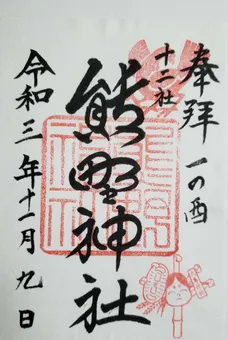 奉拝
一の酉
十二社
熊野神社
令和三年十一月九日